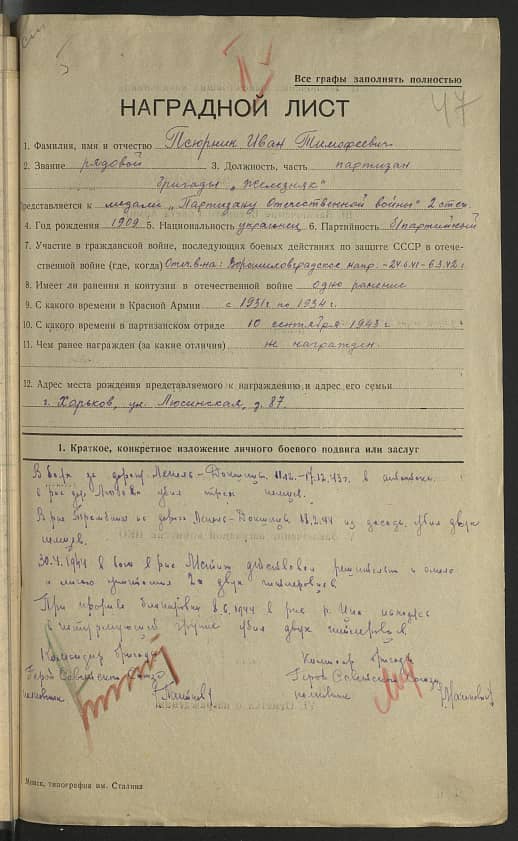 47
Все графы заполнять полностью
НАГРАДНОЙ ЛИСТ
1. Фамилия, имя и отчество Псюрник Иван Тимофеевич
2. Звание рядовой 3. Должность, часть партизан
бригады „Железняк"
Представляется к медали „Партизану Отечественной войны" 2 степ.
4. Год рождения 1909 5. Национальность украинец 6. Партийность б/партейный
7. Участие в гражданской войне, последующих боевых действиях по защите СССР в отече-
ственной войне (где, когда) Отеч. в-на: Ворошиловградское напр. -24.6.41-6.3.42 г
8. Имеет ли ранения и контузии в отечественной войне одно ранение
9. С какого времени в Красной Армии с 1931 г. по 1934 г.
10. С какого времени в партизанском отряде 10 сентября 1943 г.
11. Чем ранее награжден (за какие отличия) не награжден.
12. Адрес места рождения представляемого к награждению и адрес его семьи
г. Харьков, ул. Люсинская, д. 87.
1. Краткое, конкретное изложение личного боевого подвига или заслуг
В боях за дорогу Лепель-Докшицы 11.12.-17.12.43 г. в
в р-не убил трех немцев.
В р-не по дороге Лепель-Докшицы 11.2.44 из засады убил двух
немцев.
30.4.1944 в бою в р-не действовал решительно и смело
и лично уничтожил двух гитлеровцев.
При прорыве блокировки 8.6.1944 в р-не р. находясь
в штурмующей группе убил двух гитлеровцев.
Командир бригады Комиссар бригады
Герой Советского Союза Герой Советского Союза
полковник Титков полковник
Минск, типография им. Сталина